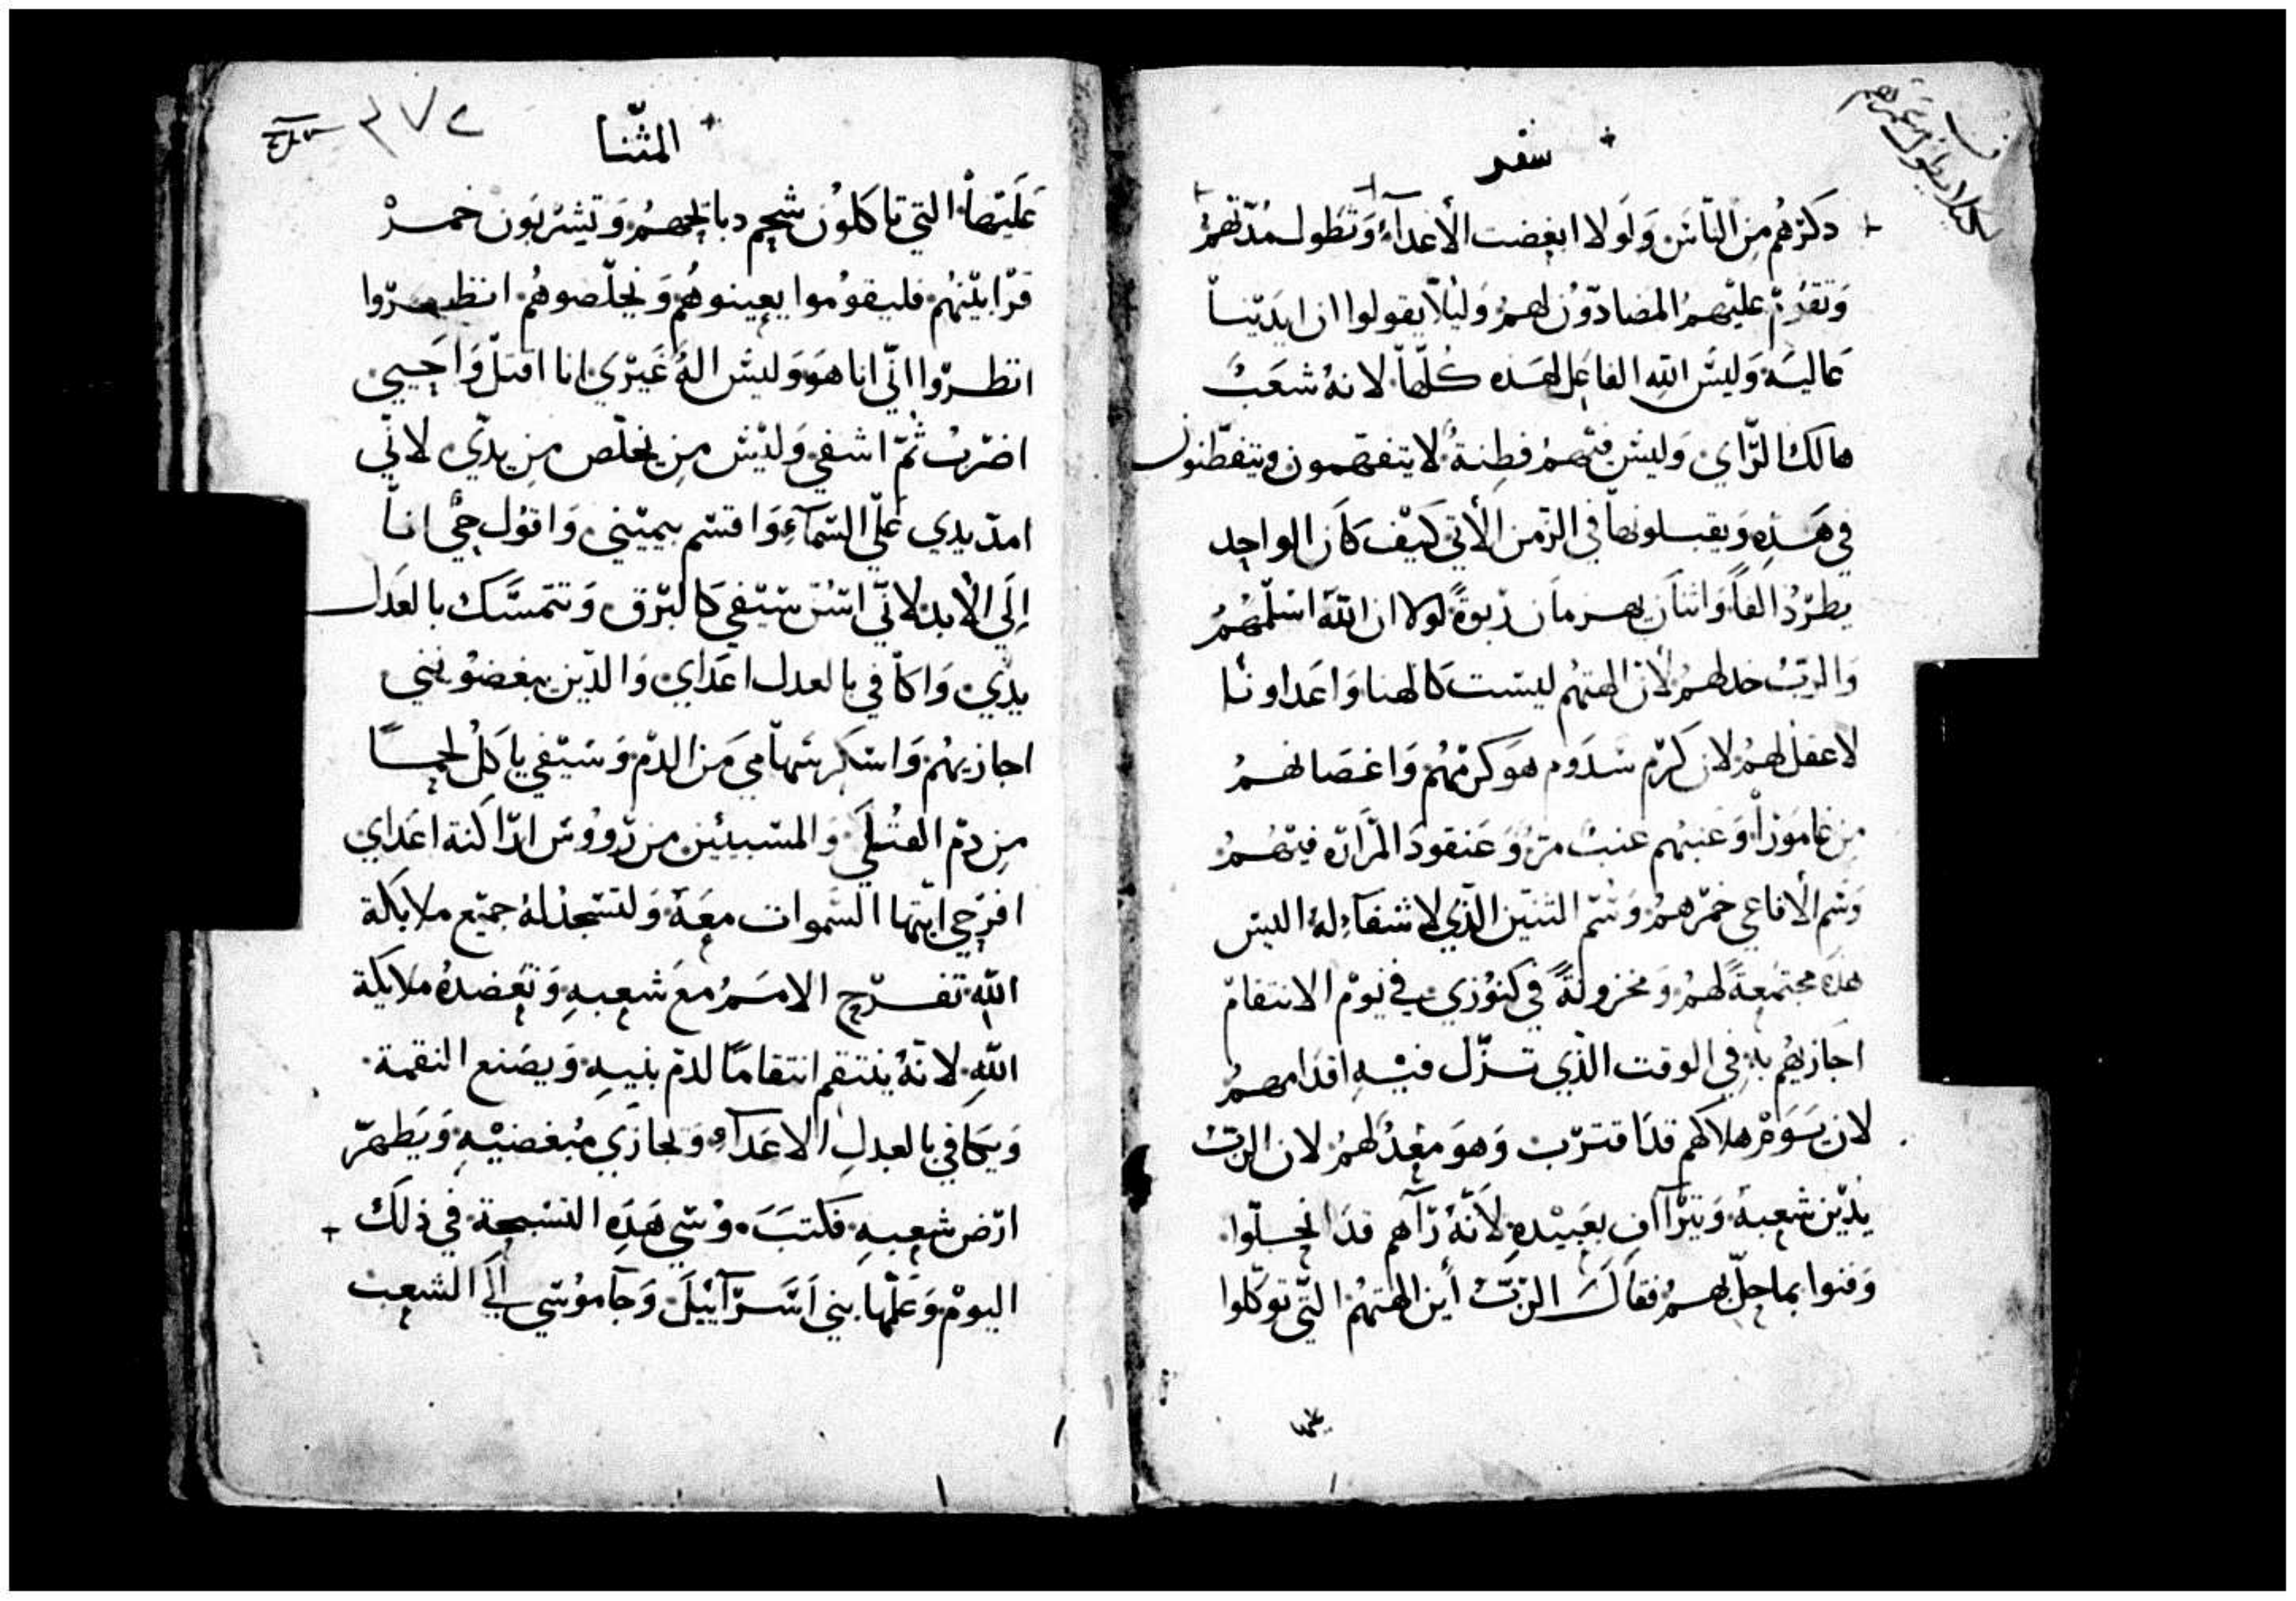 سفر
دكرهم من الناس ولولا ابغضت الأعدآء وتطول مدتهم
وتقدم عليهم المضادون لهم وليلا يقولوا ان ايدينا
عالية وليس الله الفاعل لهذه كلها لانه شعب
هالك الراي وليس فيهم فطنة لا يتفهمون ويتفطنون
في هذه ويقبلونها في الزمن الأتي كيف كان الواحد
يطرد الفا واثنان يهزمان ربوة لولا ان الله اسلمهم
والرب خدلهم لأن الهتهم ليست كالهنا واعداونا
لا عقل لهم لان كرم سدوم هو كرمهم واغصانهم
من غامورا وعنبهم عنب مر وعنقود المرارة فيهم
وسم الأفاعي خمرهم وسم التنين الذي لا شفآء له اليس
هذه مجتمعة لهم ومخزونة في كنوزي في يوم الانتقام
اجازيهم به في الوقت الذي تزل فيه اقدامهم
لان يوم هلاكهم قد اقترب وهو معد لهم لان الرب
يدين شعبه ويتراأف بعبيده لأنه رآهم قد انحلوا
وفنوا بما حل بهم فقال الرب أين الهتهم التي توكلوا
المثنا
٣٧٤
عليها التي تاكلون شحم دبايحهم وتشربون خمر
قرابينهم فليقوموا يعينوهم ويخلصوهم انظروا
انظروا اني انا هو وليس اله غيري انا اقتل واحيي
اضرب ثم اشفي وليس من يخلص من يدي لاني
امد يدي على السمآء واقسم بيميني واقول حي انا
إلى الأبد لاني اسن سيفي كالبرق وتتمسك بالعدل
يدي واكافي بالعدل اعداي والذين يبغضونني
اجازيهم واسكر سهامي من الدم وسيفي ياكل لحما
من دم القتلى والمسبيين من رووس اراكنة اعداي
افرحي ايتها السموات معه ولتسجد له جميع ملايكة
الله تفرح الامم مع شعبه وتعضده ملايكة
الله لانه ينتقم انتقاما لدم بنيه ويصنع النقمة
ويكافي بالعدل الاعدآء ويجازي مبغضيه ويطهر
ارض شعبه فكتب موسى هذه التسبحة في ذلك
اليوم وعلمها بني اسرآييل وجآ موسى إلى الشعب